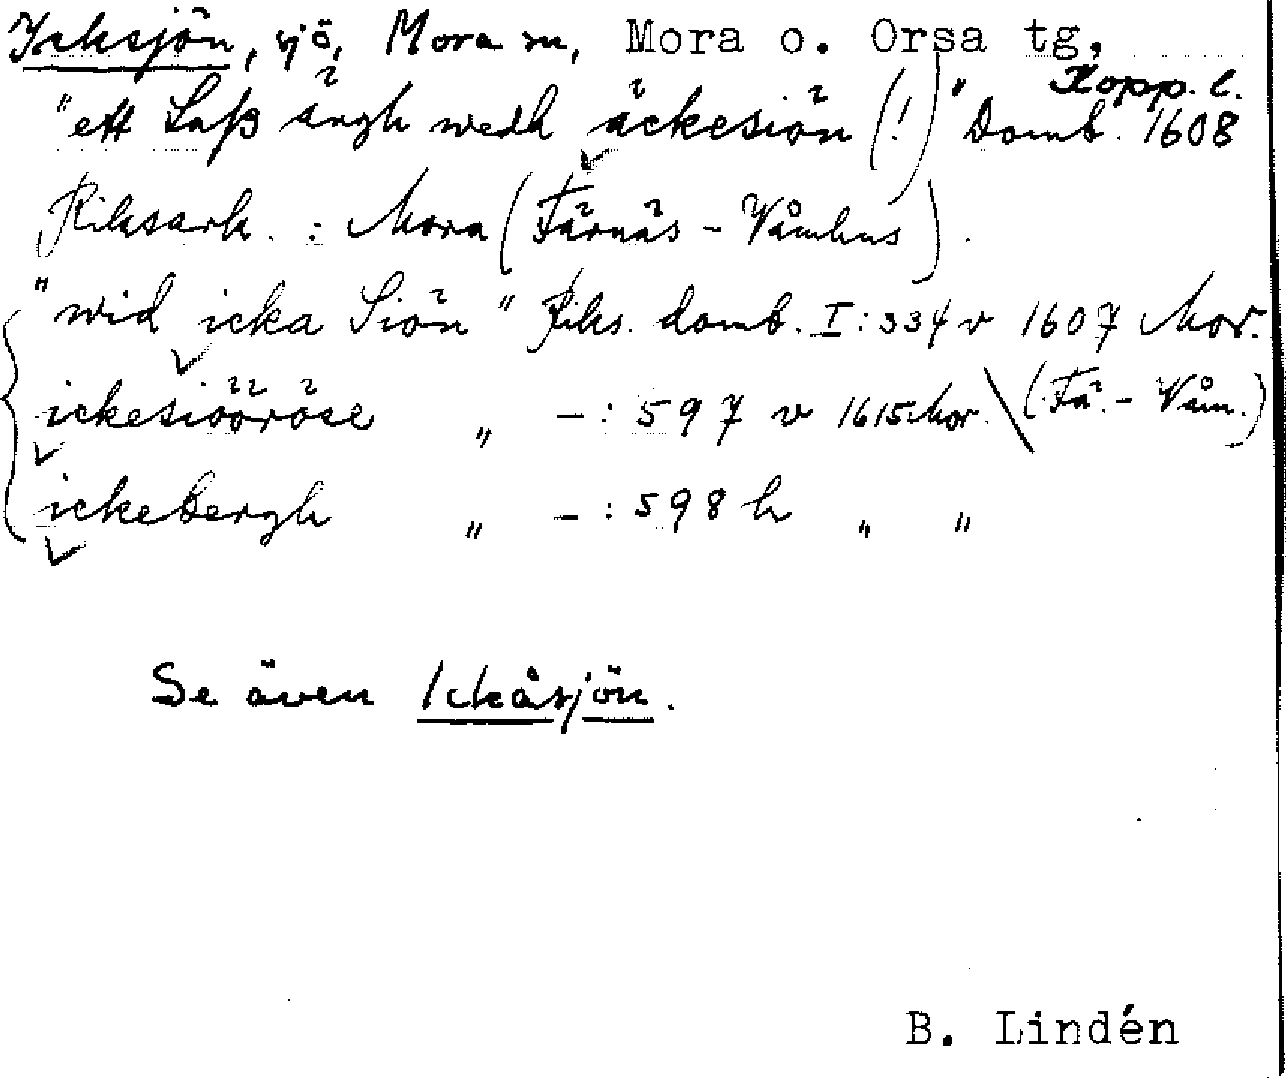 Icksjön, sjö, Mora sn, Mora o. Orsa tg,
Kopp. l.
"ett Laß ängh wedh äckesiön (!)" Domb. 1608
Riksark. : Mora (Färnäs - Våmhus).
"wid icka Siön" Riks. domb. I:334 v 1607 Mor.
ickesiööröse „ - : 597 v 1615 Mor. \ (Fä. - Våm.)
ickebergh „ - : 598 h „ „
Se även Ickåsjön.
B. Lindén